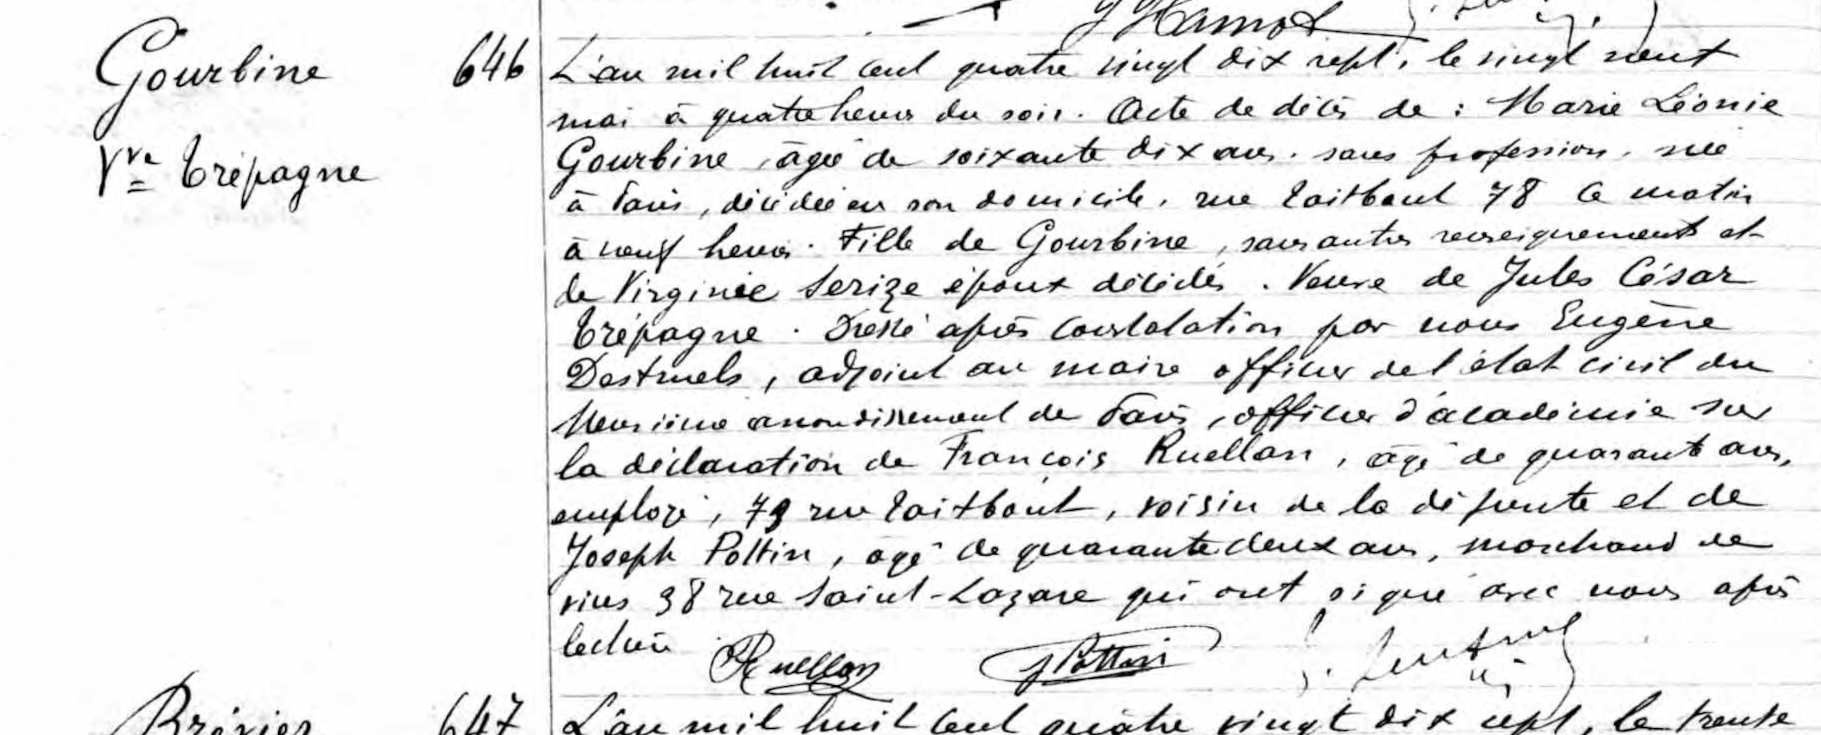 J Hamot
Gourbine
Vve Trépagne
646
L'an mil huit cent quatre vingt dix sept, le vingt neuf
mai à quatre heures du soir. Acte de décès de : Marie Léonie
Gourbine, âgée de soixante dix ans. sans profession, née
à Paris, décédée en son domicile, rue Taitbout 78 ce matin
à neuf heures. Fille de Gourbine, sans autres renseignements et
de Virginie Serize époux décédés. Veuve de Jules César
Trépagne. Dressé après constatation par nous Eugène
Destruels, adjoint au maire officier de l'état civil du
Neuvième arrondissement de Paris, officier d'académie sur
la déclaration de François Ruellan, âgé de quarante ans,
employé, 79 rue Taitbout, voisin de la défunte et de
Joseph Pottin, âgé de quarante deux ans, marchand de
vins 38 rue Saint-Lazare qui ont signé avec nous après
lecture
Ruellan J Pottin
Brévier
647
L'an mil huit cent quatre vingt dix sept, le trente